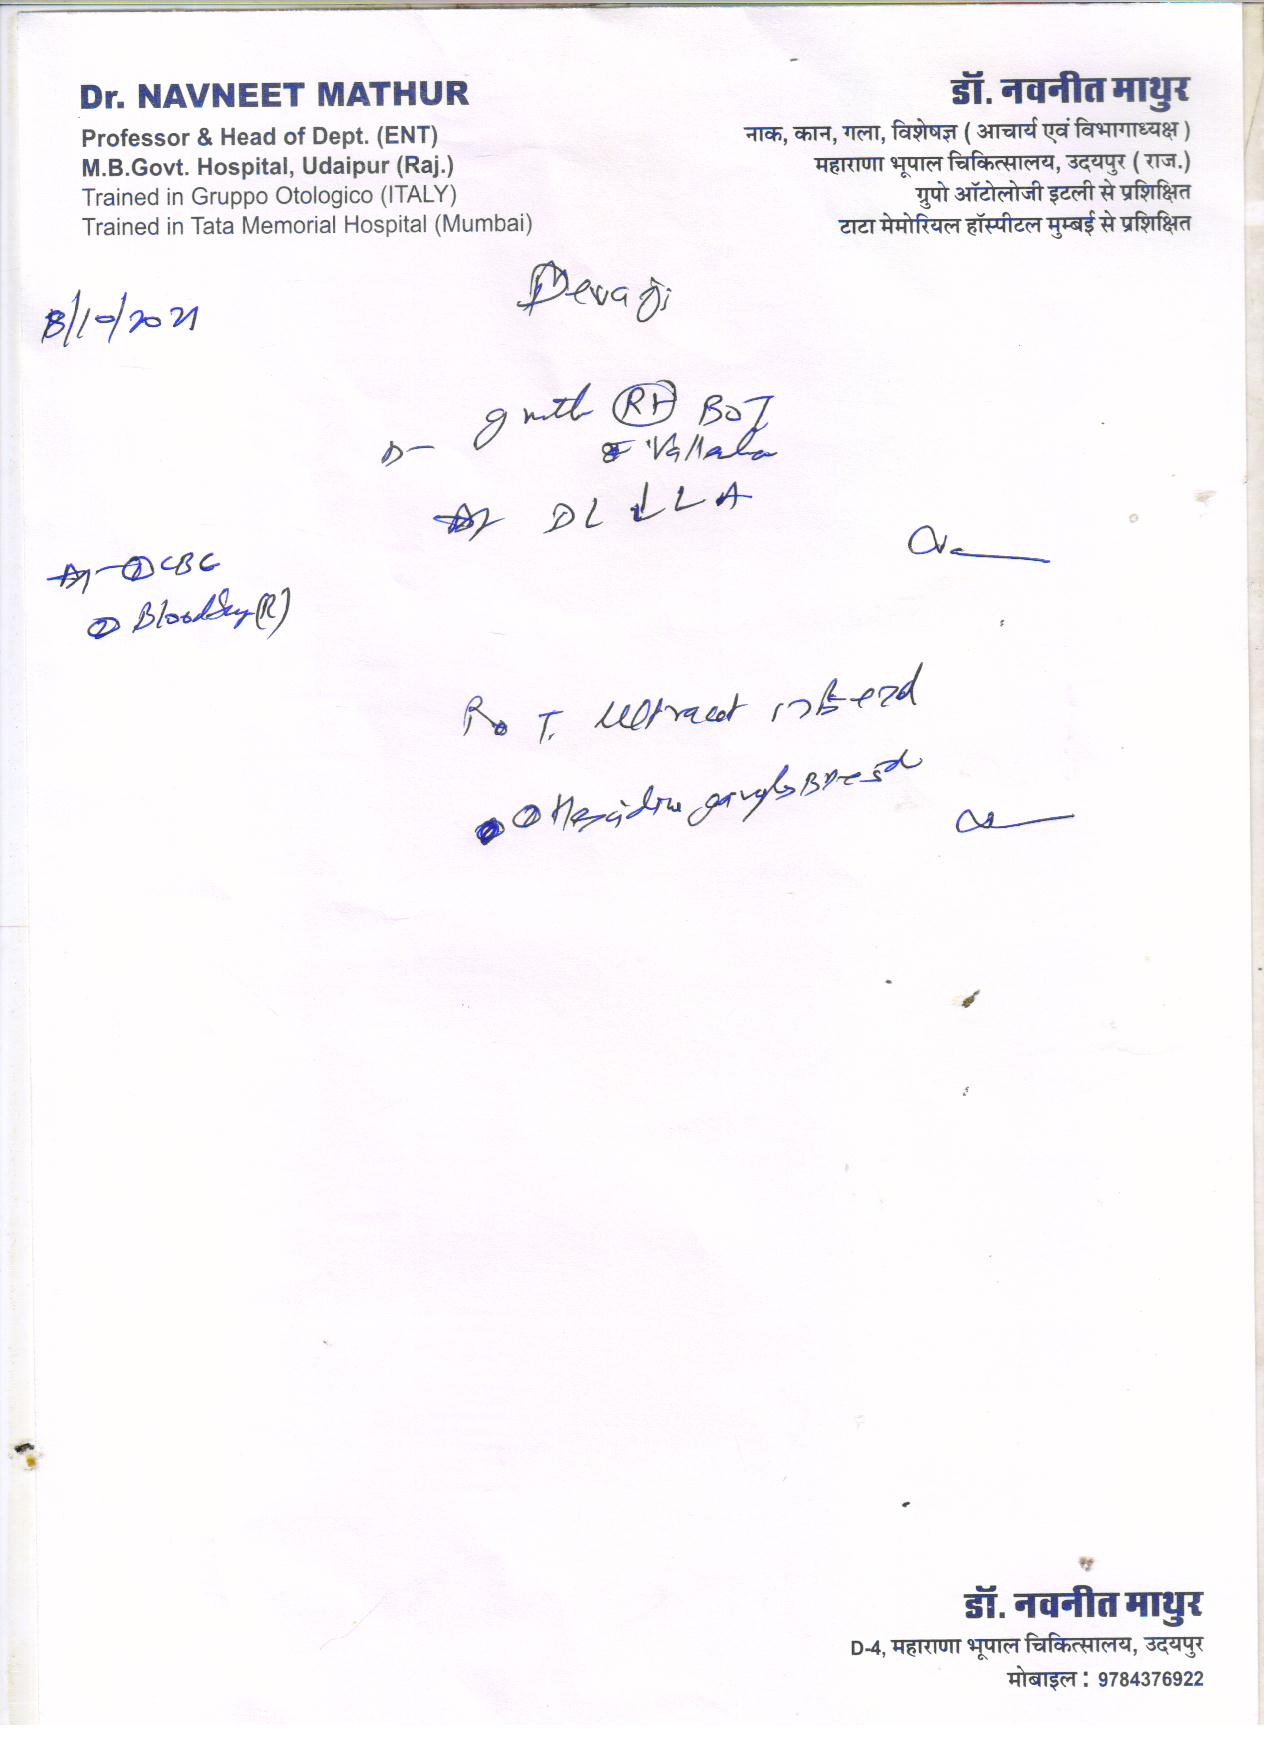 Dr. NAVNEET MATHUR
Professor & Head of Dept. (ENT)
M.B.Govt. Hospital, Udaipur (Raj.)
Trained in Gruppo Otologico (ITALY)
Trained in Tata Memorial Hospital (Mumbai)
डॉ. नवनीत माथुर
नाक, कान, गला, विशेषज्ञ ( आचार्य एवं विभागाध्यक्ष )
महाराणा भूपाल चिकित्सालय, उदयपुर ( राज.)
ग्रुपो ऑटोलोजी इटली से प्रशिक्षित
टाटा मेमोरियल हॉस्पीटल मुम्बई से प्रशिक्षित
Devaji
8/10/2021
RT BOT
DL
① CBC
② Blood (R)
T. Ultracet
gargles
डॉ. नवनीत माथुर
D-4, महाराणा भूपाल चिकित्सालय, उदयपुर
मोबाइल : 9784376922